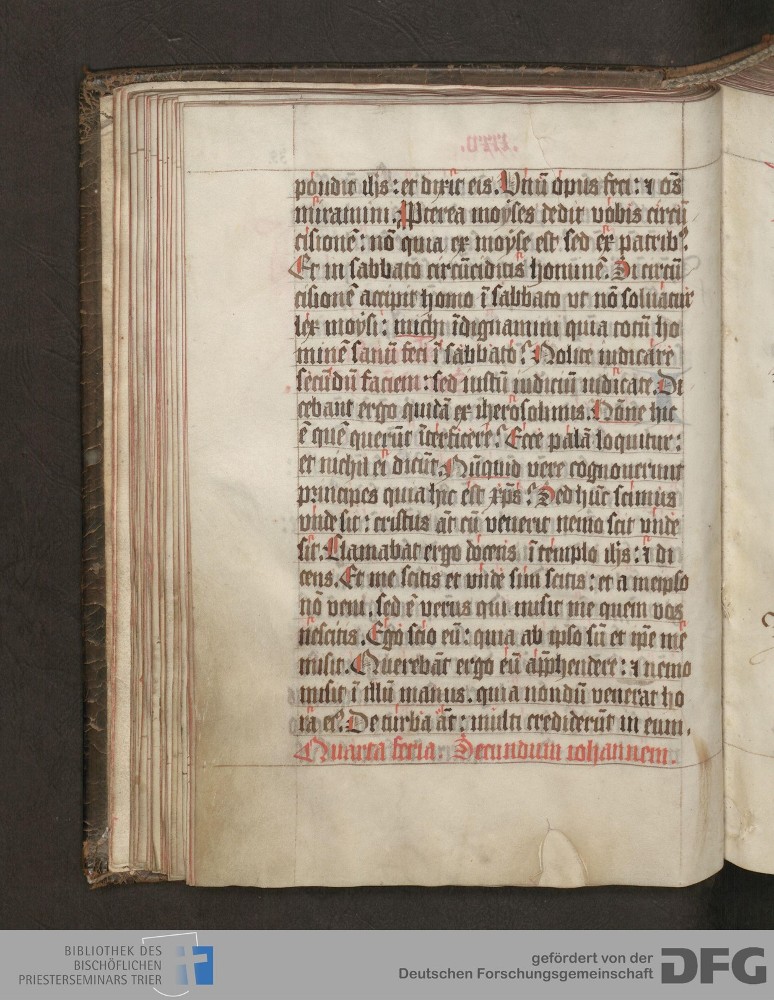 pondit illis : et dixit eis. Unū opus feci : ⁊ om̄s
miramini. Propterea moyses dedit vobis circū
cisionē : nō quia ex moyse est sed ex patribꝰ.
Et in sabbato circūciditis hominē. Si circū
cisionē accipit homo ī sabbato ut nō soluatur
lex moysi : michi īdignamini quia totū ho
minē sanū feci ī sabbato? Nolite iudicare
secūdū faciem : sed iustū iudiciū iudicate. Di
cebant ergo quidā ex iherosolimis. Nōne hic
ē quē querūt īterficere? Ecce palā loquitur :
et nichil ei dicūt. Nūquid vere cognouerunt
principes quia hic est xp̄s? Sed hūc scimus
vnde sit : cristus aūt cū venerit nemo scit vnde
sit. Clamabat ergo docens ī templo ih̄s : ⁊ di
cens. Et me scitis et vnde sim scitis : et a meipso
nō veni. sed ē verus qui misit me quem vos
nescitis. Ego scio eū : quia ab ipso sū et ip̄e me
misit. Querebāt ergo eū app̄hendere : ⁊ nemo
misit ī illū manus. quia nondū venerat ho
ra eiꝰ. De turba aūt : multi crediderūt in eum.
Quarta feria. Secundum iohannem.
BIBLIOTHEK DES
BISCHÖFLICHEN
PRIESTERSEMINARS TRIER
gefördert von der
Deutschen Forschungsgemeinschaft
DFG